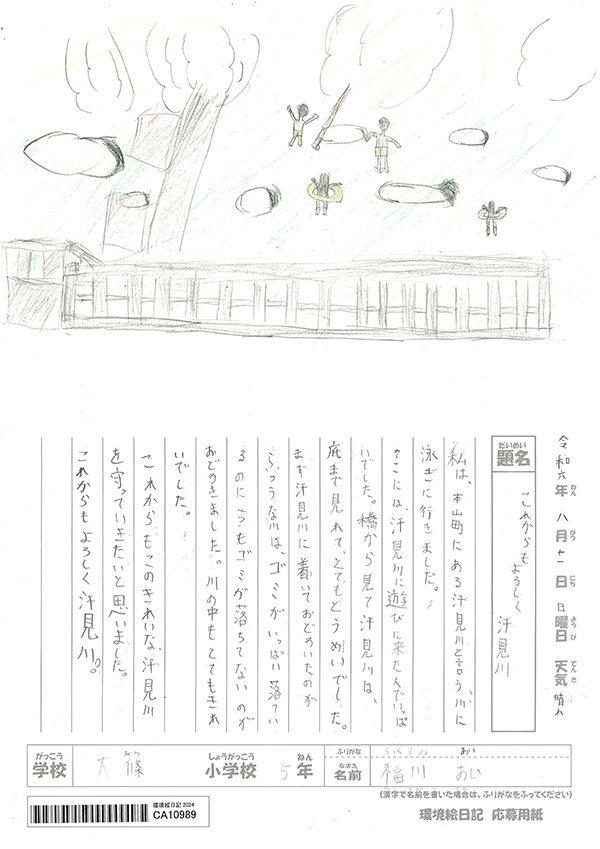 令和六年 八月十一日 日曜日 天気 晴れ
だいめい
題名
これからも
よろしく 汗見川
私は、本山町にある汗見川と言う、川に
泳ぎに行きました。
そこには、汗見川に遊びに来た人でいっぱ
いでした。橋から見て汗見川は、
底まで見れて、とてもとうめいでした。
まず汗見川に着いておどろいたのが
ふつうな川は、ゴミがいっぱい落ちてい
るのに一つもゴミが落ちてないのが
おどろきました。川の中もとてもきれ
いでした。
これからもこのきれいな、汗見川
を守っていきたいと思いました。
これからもよろしく汗見川。
がっこう
学校
大篠
しょうがっこう
小学校
5年
ねん
ふりがな
なまえ
名前
あい
福川 あい
(漢字で名前を書いた場合は、ふりがなをふってください)
環境絵日記 2024
CA10989
環境絵日記 応募用紙